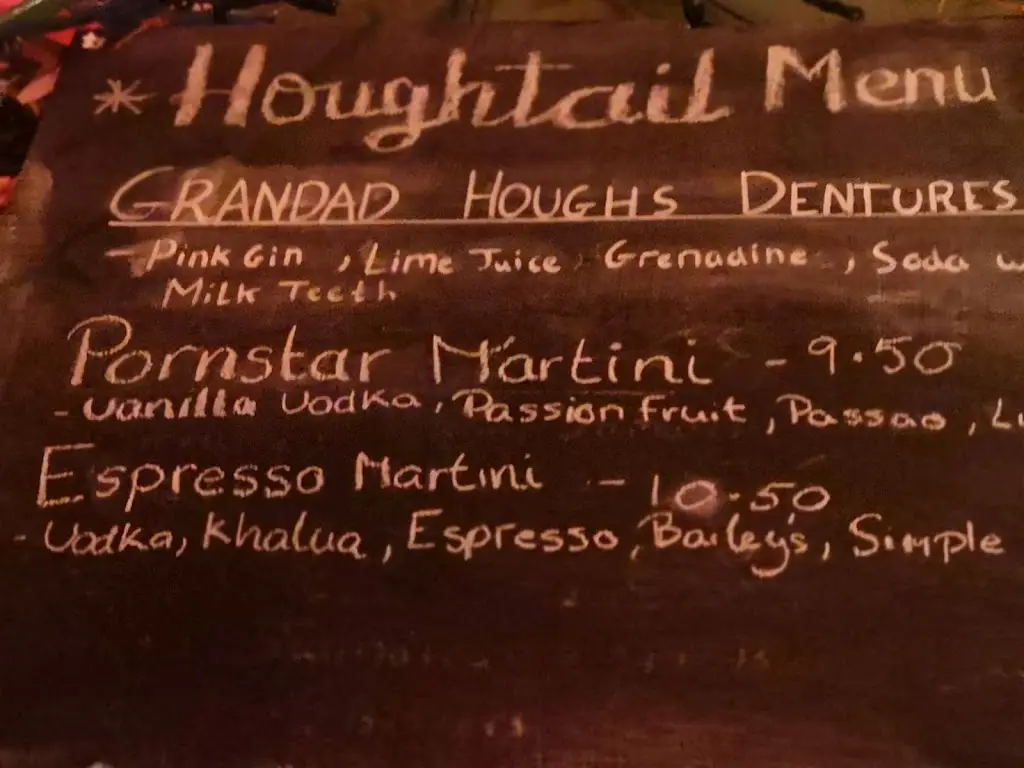 * Houghtail Menu
GRANDAD HOUGHS DENTURES
- Pink Gin, Lime Juice, Grenadine, Soda w
Milk Teeth
Pornstar Martini - 9.50
- Vanilla Vodka, Passion fruit, Passao, Li
Espresso Martini - 10.50
- Vodka, Khalua, Espresso, Bailey's, Simple